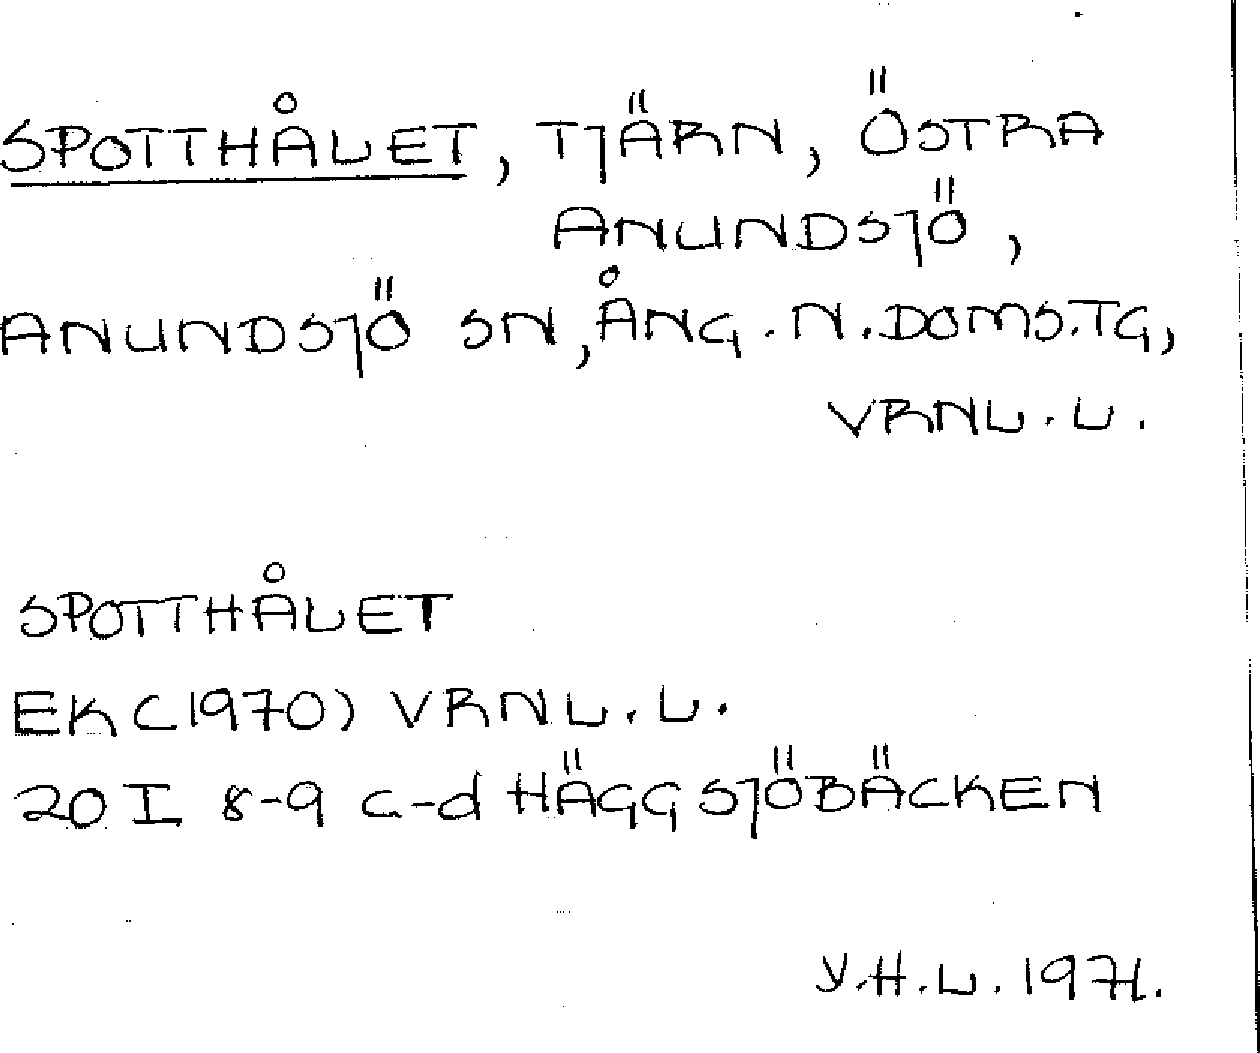 SPOTTHÅLET, TJÄRN, ÖSTRA
ANUNDSJÖ,
ANUNDSJÖ SN, ÅNG. N. DOMS.TG,
VRNL. L.
SPOTTHÅLET
EK (1970) VRNL. L.
20 I 8-9 c-d HÄGGSJÖBÄCKEN
Y.H.L. 1971.